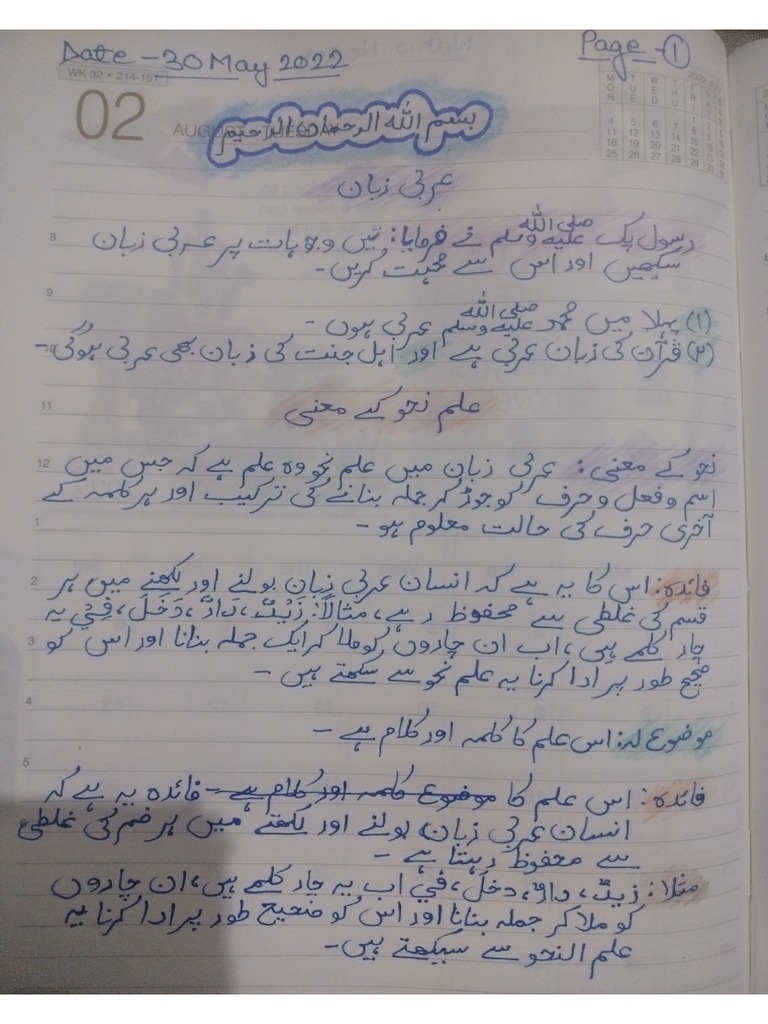 Date - 30 May 2022
Page - ①
WK 32 • 214-151
02
AUGUST • TUESDAY
بسم الله الرحمان الرحیم
عربی زبان
رسول پاک صلی اللہ علیہ وسلم نے فرمایا: تین وجوہات پر عربی زبان
سیکھیں اور اس سے محبت کریں۔
(۱) پہلا میں محمد صلی اللہ علیہ وسلم عربی ہوں۔
(۲) قرآن کی زبان عربی ہے اور اہل جنت کی زبان بھی عربی ہوگی۔
علم نحو کے معنی
نحو کے معنی: عربی زبان میں علم نحو وہ علم ہے کہ جس میں
اسم و فعل و حرف کو جوڑ کر جملہ بنانے کی ترکیب اور ہر کلمہ کے
آخری حرف کی حالت معلوم ہو۔
فائدہ: اس کا یہ ہے کہ انسان عربی زبان بولنے اور لکھنے میں ہر
قسم کی غلطی سے محفوظ رہے، مثالاً: زَیْدٌ، دَارٌ، دَخَلَ، فِیْ یہ
چار کلمے ہیں، اب ان چاروں کو ملا کر ایک جملہ بنانا اور اس کو
صحیح طور پر ادا کرنا یہ علم نحو سے سکھتے ہیں۔
موضوع لہ: اس علم کا کلمہ اور کلام ہے۔
فائدہ: اس علم کا موضوع کلمہ اور کلام ہے۔ فائدہ یہ ہے کہ
انسان عربی زبان بولنے اور لکھنے میں ہر قسم کی غلطی
سے محفوظ رہتا ہے۔
مثلا: زیدٌ، دارٌ، دخلَ، فی اب یہ چار کلمے ہیں، ان چاروں
کو ملا کر جملہ بنانا اور اس کو صحیح طور پر ادا کرنا یہ
علم النحو سے سیکھتے ہیں۔